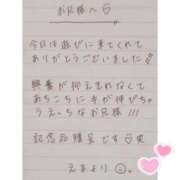 お兄様へ♡
今日は遊びに来てくれて
ありがとうございました!!
興奮が抑えきれなくて
あちこちに手が伸びちゃ
うえっちなお兄様!!!
記念品贈呈です♡笑
えまより☺